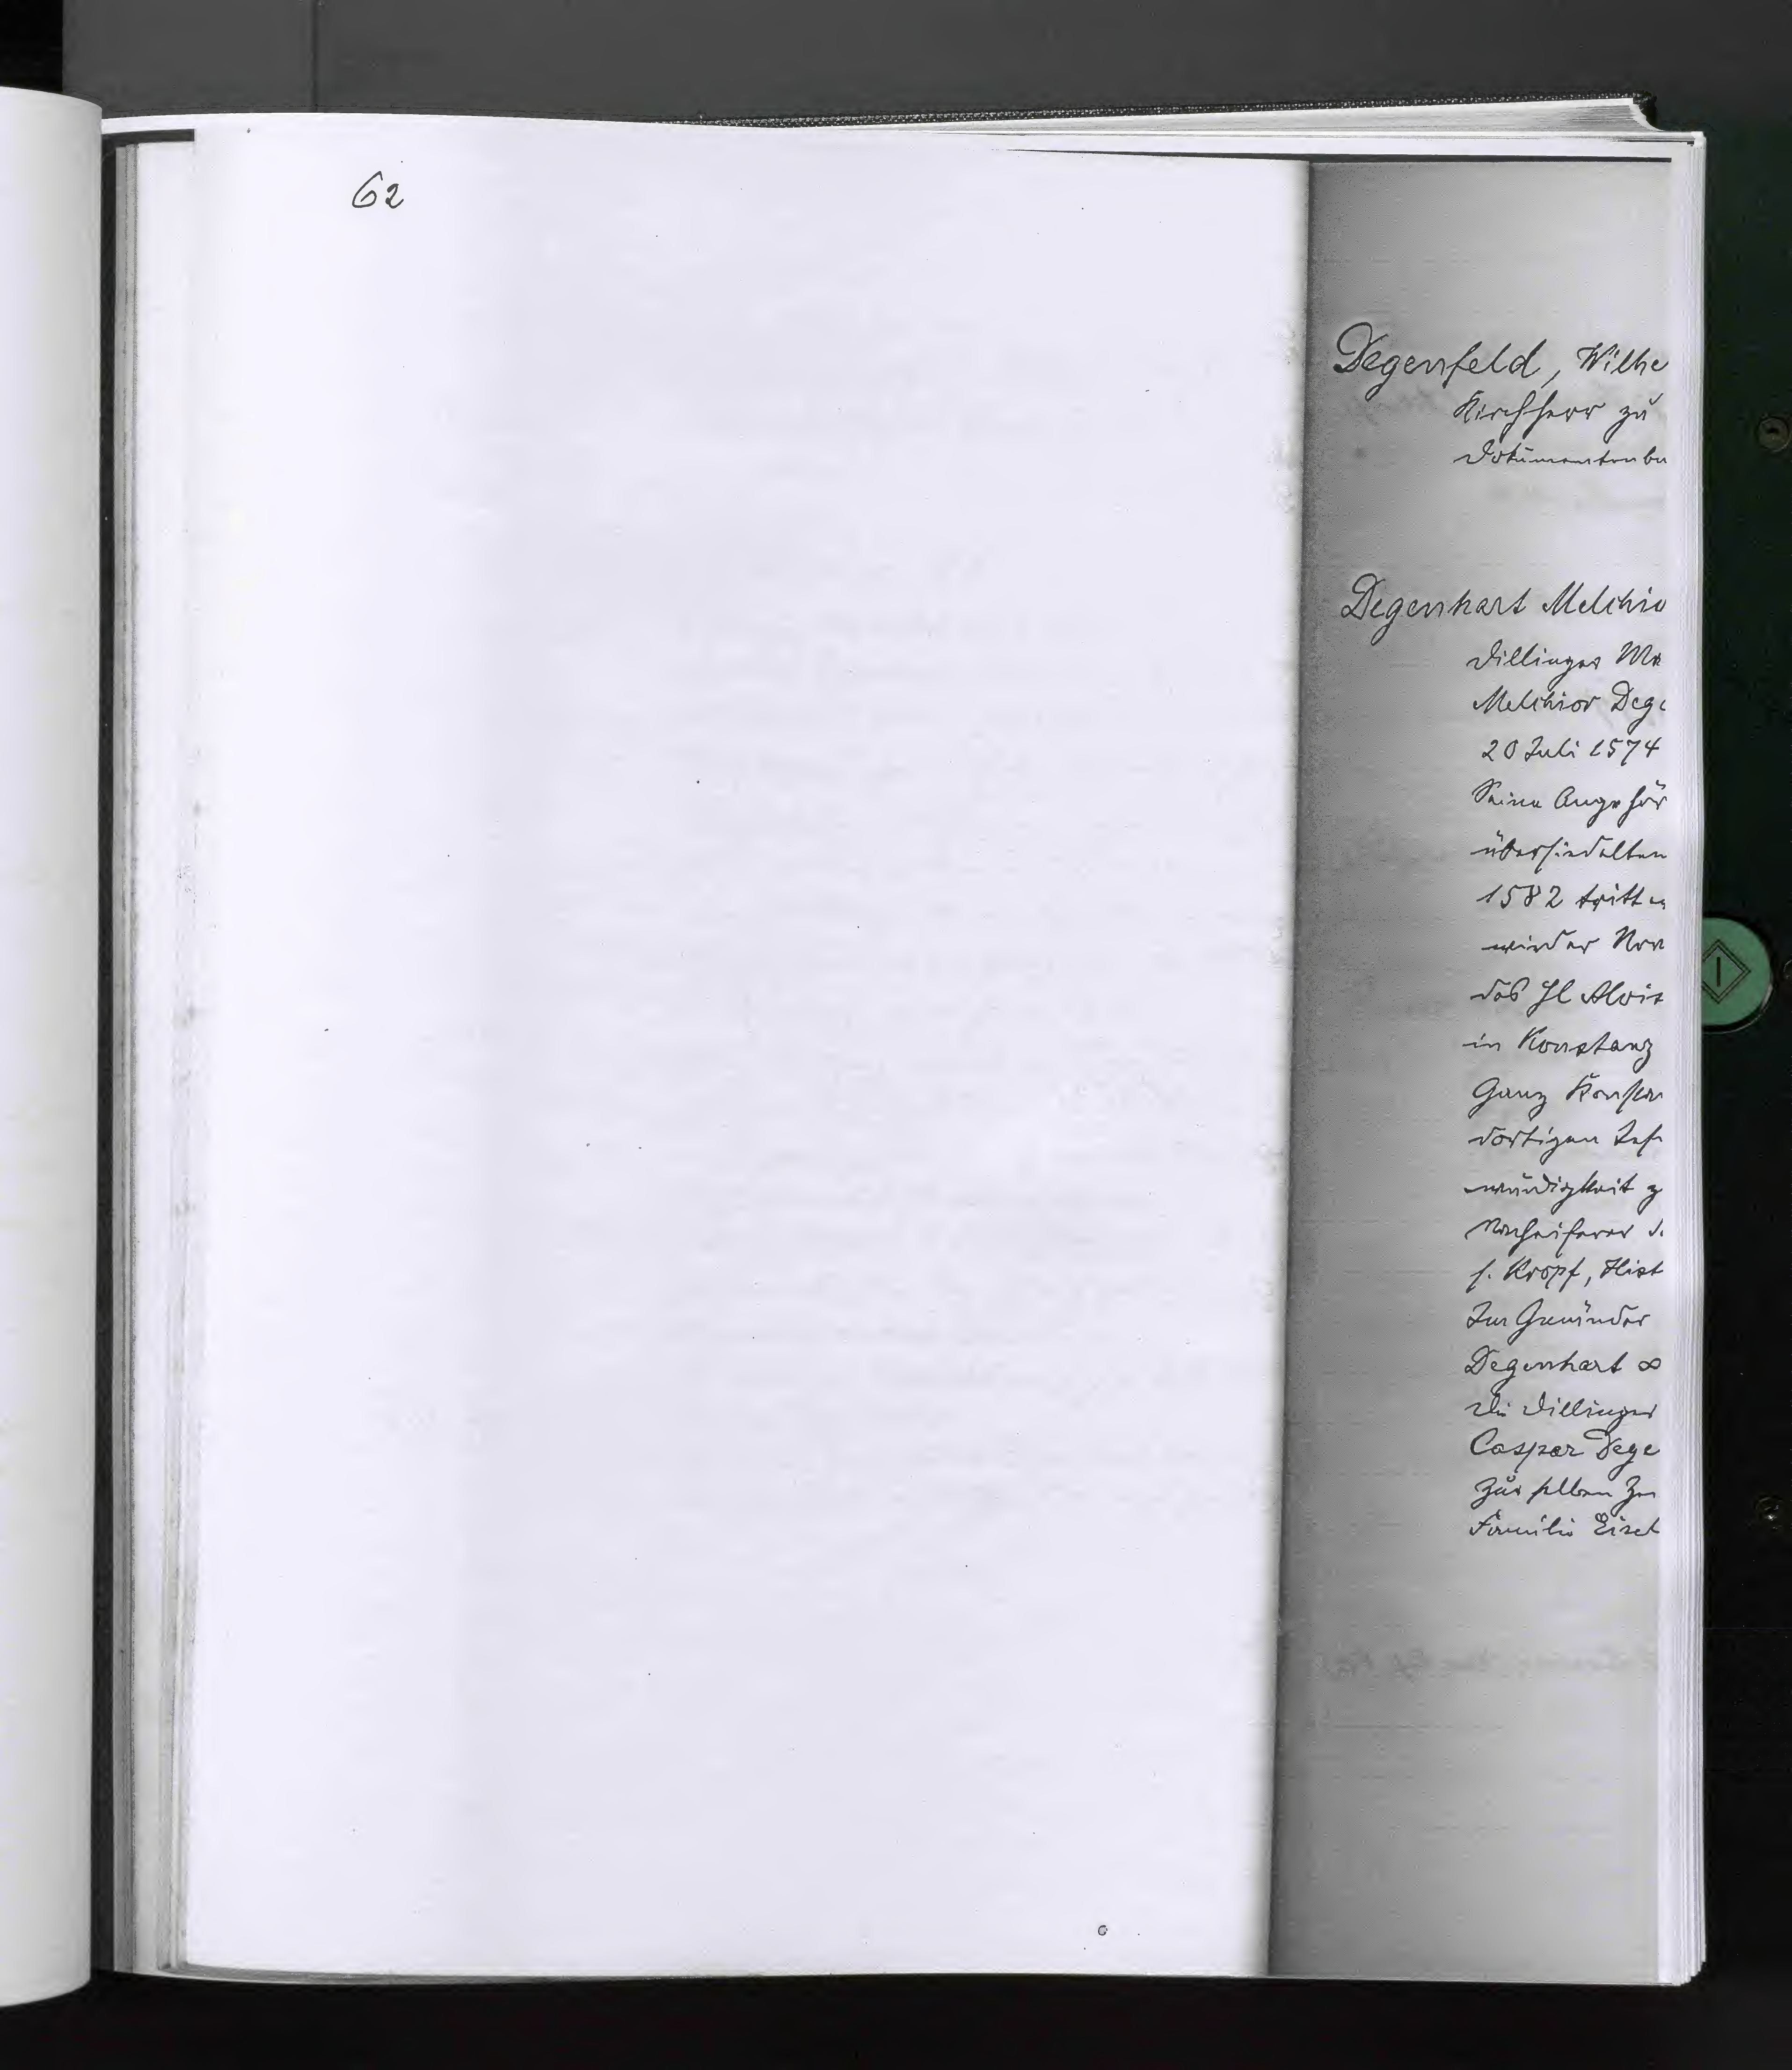 62
Degenfeld, Wilhe
Kirchherr zu
Dokumentenbu
Degenhart Melchio
Dillinger Ma
Melchior Dege
20 Juli 1574
Seine Angehör
übersiedelten
1582 tritt er
wieder Nov
des hl Alois
in Konstanz
Ganz Konstan
dortigen Jes
würdigkeit z
Nacheiferer d
s. Kropf, Hist
Zur Gmünder
Degenhart ∞
Die Dillinger
Caspar Dege
Zur selben Ze
Familie Eisel